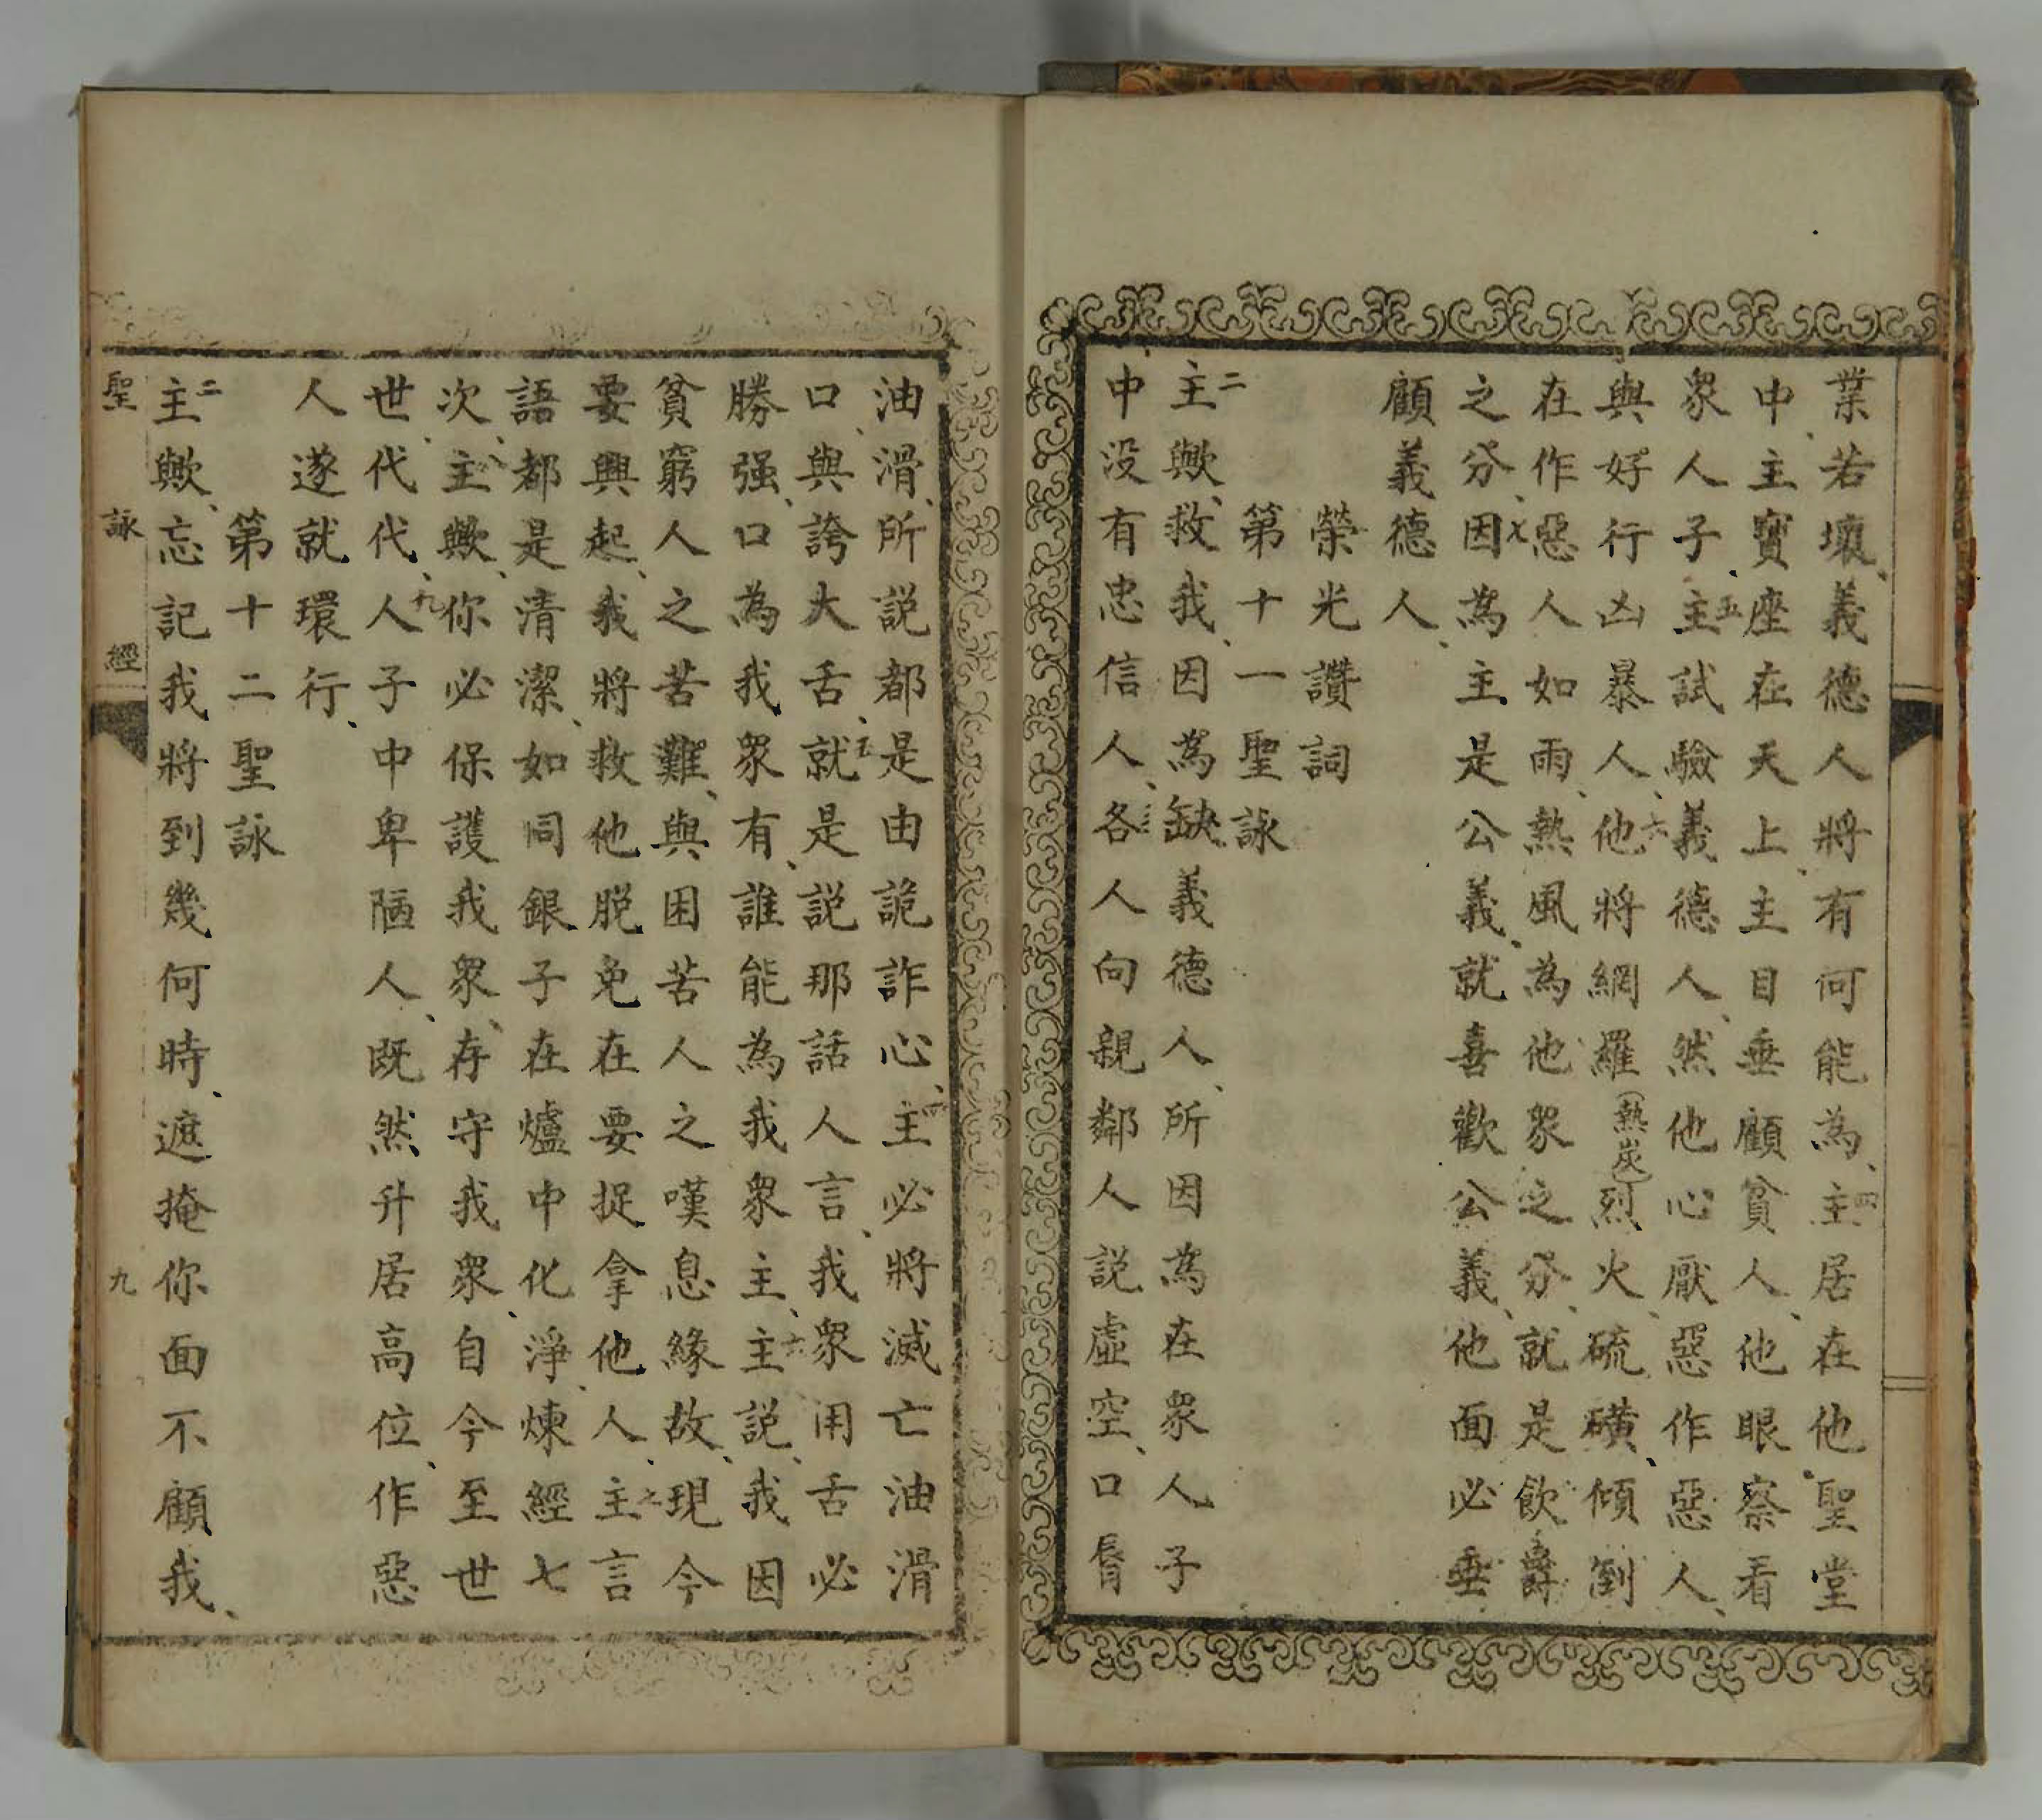 業若壞、義德人將有何能為、四主居在他聖堂
中、主寶座在天上、主目垂顧貧人、他眼察看
衆人子、五主試驗義德人、然他心厭惡作惡人、
與好行凶暴人、六他將網羅（熱炭）烈火、硫磺、傾倒
在作惡人如雨、熱風為他衆之分、就是飲爵
之分、七因為主是公義、就喜歡公義、他面必垂
顧義德人、
榮光讚詞
第十一聖詠
二主歟、救我、因為缺義德人、所因為在衆人子
中没有忠信人、三各人向親鄰人説虛空、口脣
油滑、所説都是由詭詐心、四主必將滅亡油滑
口、與誇大舌、五就是説那話人言、我衆用舌必
勝强、口為我衆有、誰能為我衆主、六主説、我因
貧窮人之苦難、與困苦人之嘆息緣故、現今
要興起、我將救他脱免在要捉拿他人、七主言
語都是清潔、如同銀子在爐中化淨、煉經七
次、八主歟、你必保護我衆、存守我衆、自今至世
世、代代、九人子中卑陋人、既然升居高位、作惡
人遂就環行、
第十二聖詠
二主歟、忘記我將到幾何時、遮掩你面不顧我、
聖詠經 九